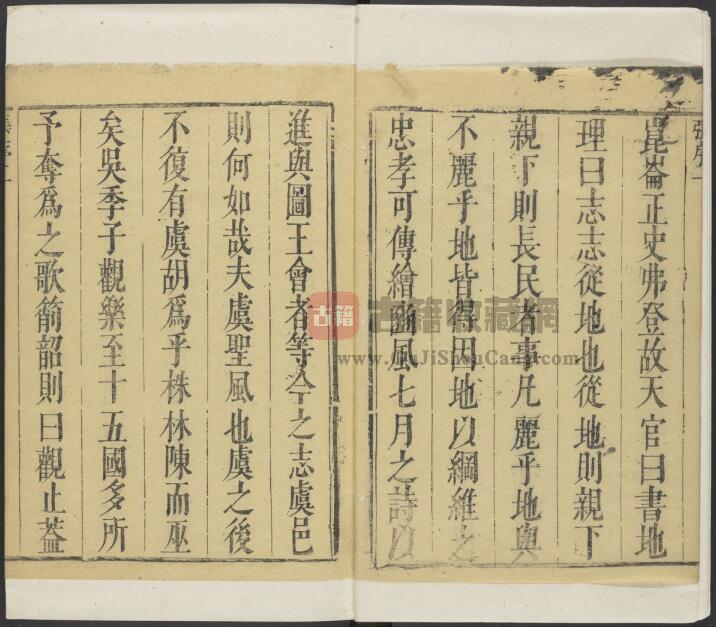 崑崙正史弗登故天官曰書地
理曰志志從地也從地則親下
親下則長民者事凡麗乎地與
不麗乎地皆得因地以綱維之
忠孝可傳繪豳風七月之詩以
進與圖王會者等今之志虞邑
則何如哉夫虞聖風也虞之後
不復有虞胡爲乎株林陳而巫
矣吳季子觀樂至十五國多所
予奪爲之歌箾韶則曰觀止蓋
張序一
張序二
古籍
古籍收藏網
www.GuJiShouCang.com